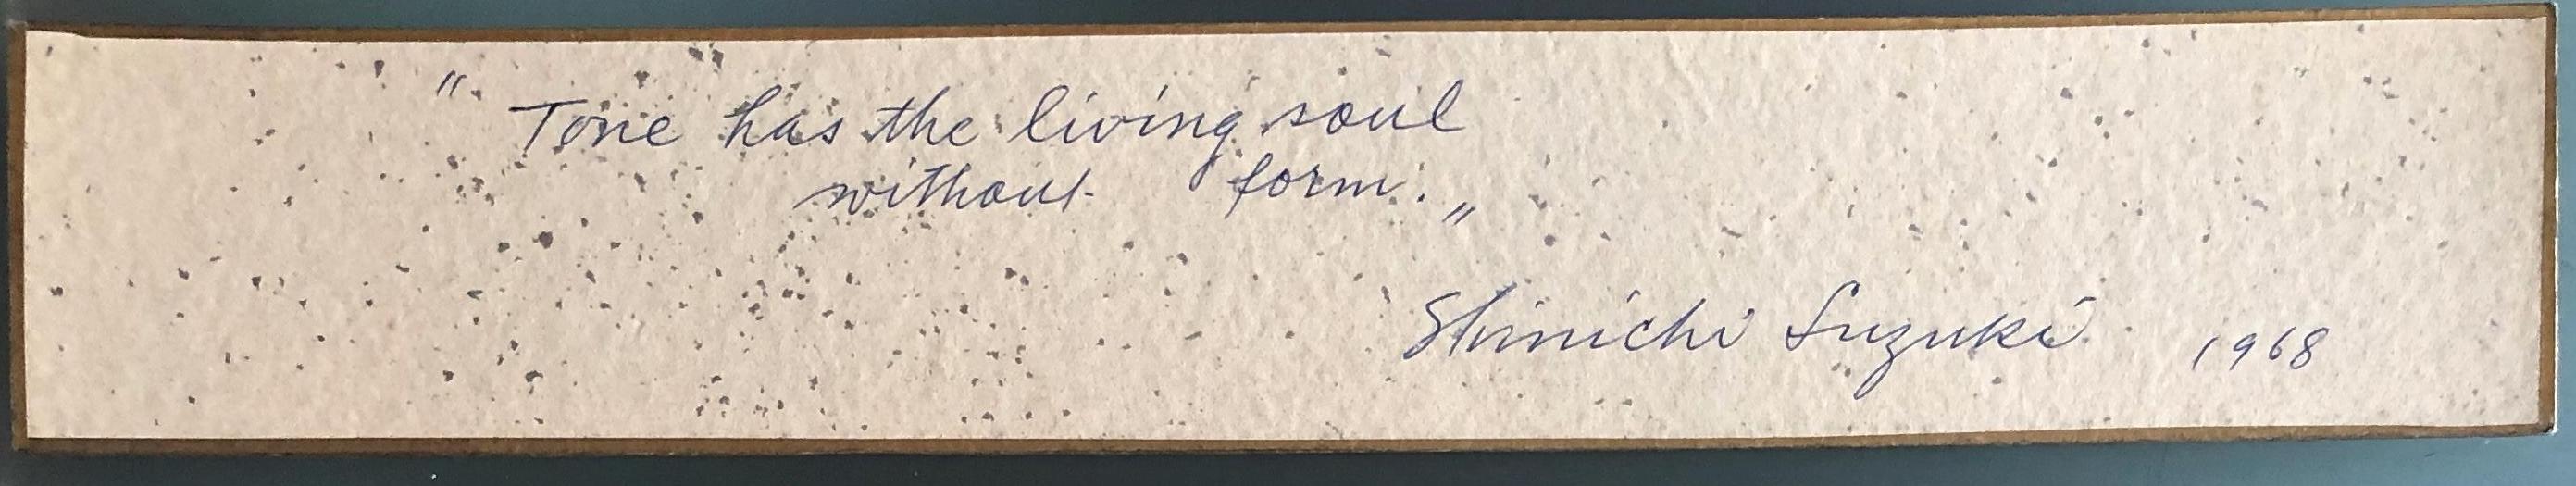 " Tone has the living soul
without form. "
Shinichi Suzuki 1968